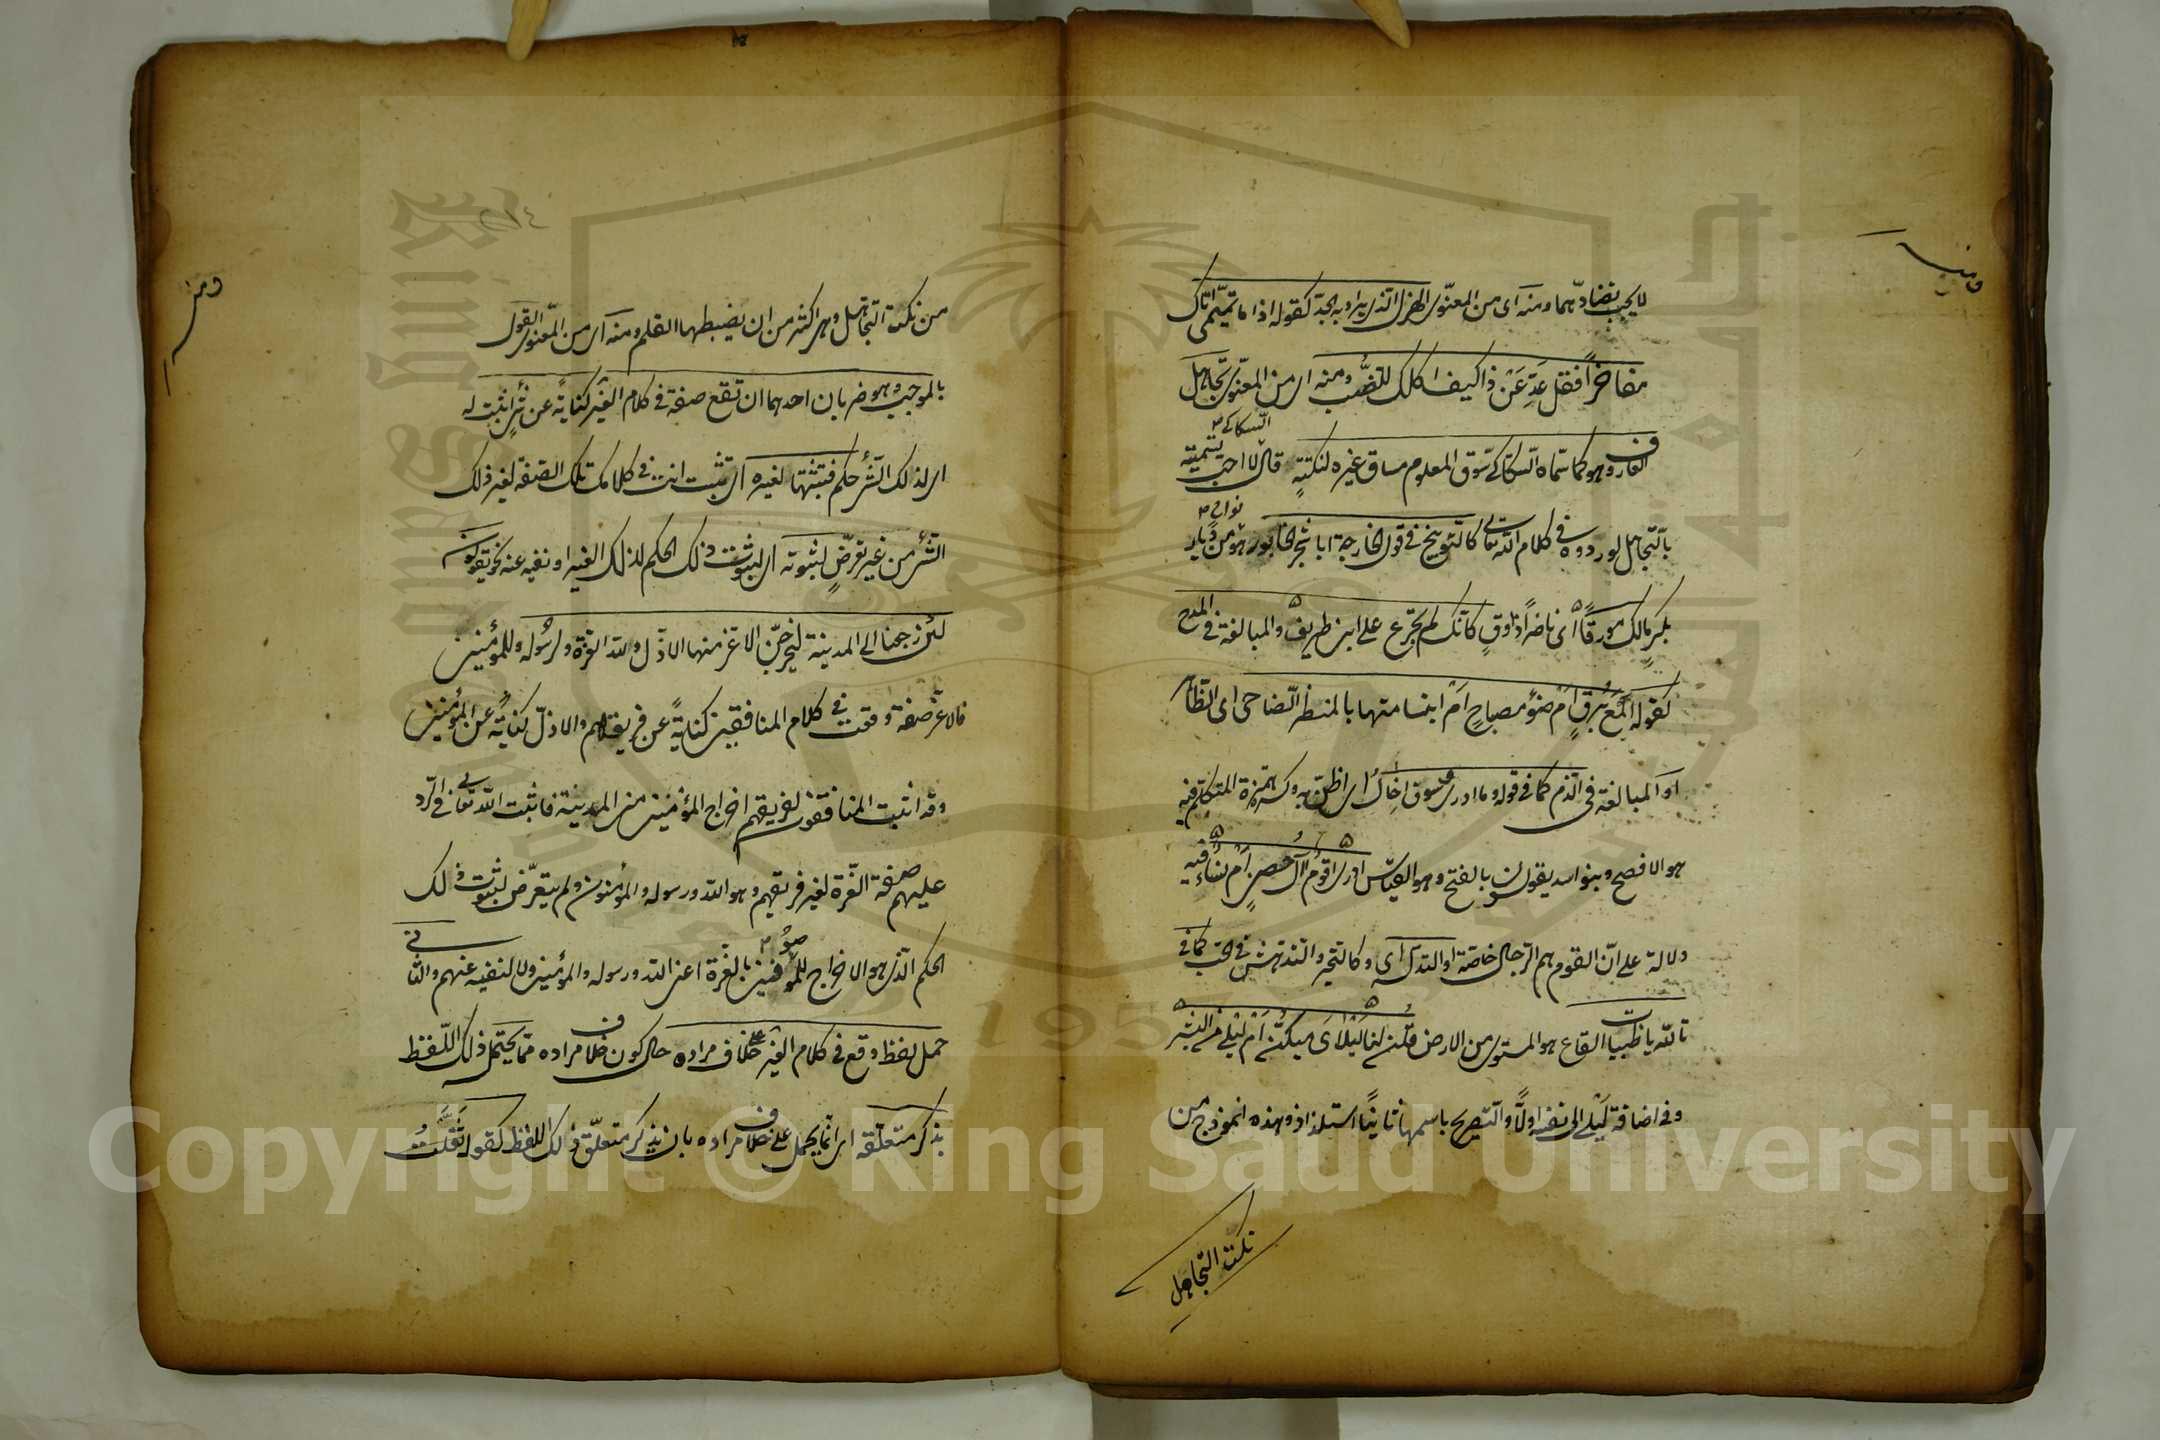 ومنه
لا يجب تضادّهما ومنه اى من المعنوى الهزل الذى يراد به الجد كقوله اذا ما تميمى اتاك
مفاخرًا فقل عدّ عن ذا كيف اكلك للضب ومنه اى من المعنوى تجاهل
العارف وهو كما سماه السكاكى سوق المعلوم مساق غيره لنكتةٍ قال السكاكى لا احب تسميته
بالتجاهل لوروده فى كلام الله تعالى كالتوبيخ فى قول الخارجية ايا شجر الخابور هو من نواحى ديار
بكر مالك مورقًا اى ناضرًا ذا ورق كانك لم تجزع على ابن طريف والمبالغة فى المدح
كقوله المع برقٍ ام ضوء مصباحٍ ام ابتسامتها بالمنظر الضاحى اى الظاهر
او المبالغة فى الذم كما فى قوله وما ادرى وسوف اخال اى اظن به وكسر همزة المتكلم فيه
هو الافصح وبنو اسد يقولون بالفتح وهو القياس ادرى اقوم آل حصن ام نساء فيه
دلالة على انّ القوم هم الرجال خاصة او التدله اى وكالتحير والتدهش فى الحب كما فى
تالله يا ظبيات القاع هو المستوى من الارض قلن لنا ليلاى منكنّ ام ليلى من البشر
وفى اضافة ليلى الى نفسه اولًا والتصريح باسمها ثانيًا استلذاذ وهذه انموذج من
نكت التجاهل
٢١٤
ومن
من نكت التجاهل وهى اكثر من ان يضبطها القلم ومنه اى من المعنوى القول
بالموجب وهو ضربان احدهما ان تقع صفة فى كلام الغير كنايةً عن شئ اثبت له
اى لذلك الشئ حكم فتثبتها لغيره اى تثبت انت فى كلامك تلك الصفة لغير ذلك
الشئ من غير تعرّضٍ لثبوته اى لثبوت ذلك الحكم لذلك الغير او نفيه عنه نحو يقولون
لئن رجعنا الى المدينة ليخرجنّ الاعز منها الاذل ولله العزة ولرسوله وللمؤمنين
فالاعز صفة وقعت فى كلام المنافقين كنايةً عن فريقهم والاذلّ كنايةً عن المؤمنين
وقد اثبت المنافقون لفريقهم اخراج المؤمنين من المدينة فاثبت الله تعالى فى الرد
عليهم صفة العزة لغير فريقهم وهو الله ورسوله والمؤمنون ولم يتعرّض لثبوت ذلك
الحكم الذى هو الاخراج للموصوفين بالعزة اعنى الله ورسوله والمؤمنين ولا لنفيه عنهم والثانى
حمل لفظ وقع فى كلام الغير على خلاف مراده حال كون خلاف مراده مما يحتمل ذلك اللفظ
بذكر متعلقه اى انما يحمل على خلاف مراده بان يذكر متعلّق ذلك اللفظ كقوله ثقّلت